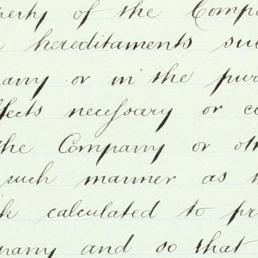 perty of the Compa
hereditaments suc
any or in the pur
ffects necessary or co
the Company or oth
such manner as t
k calculated to pr
pany and so that